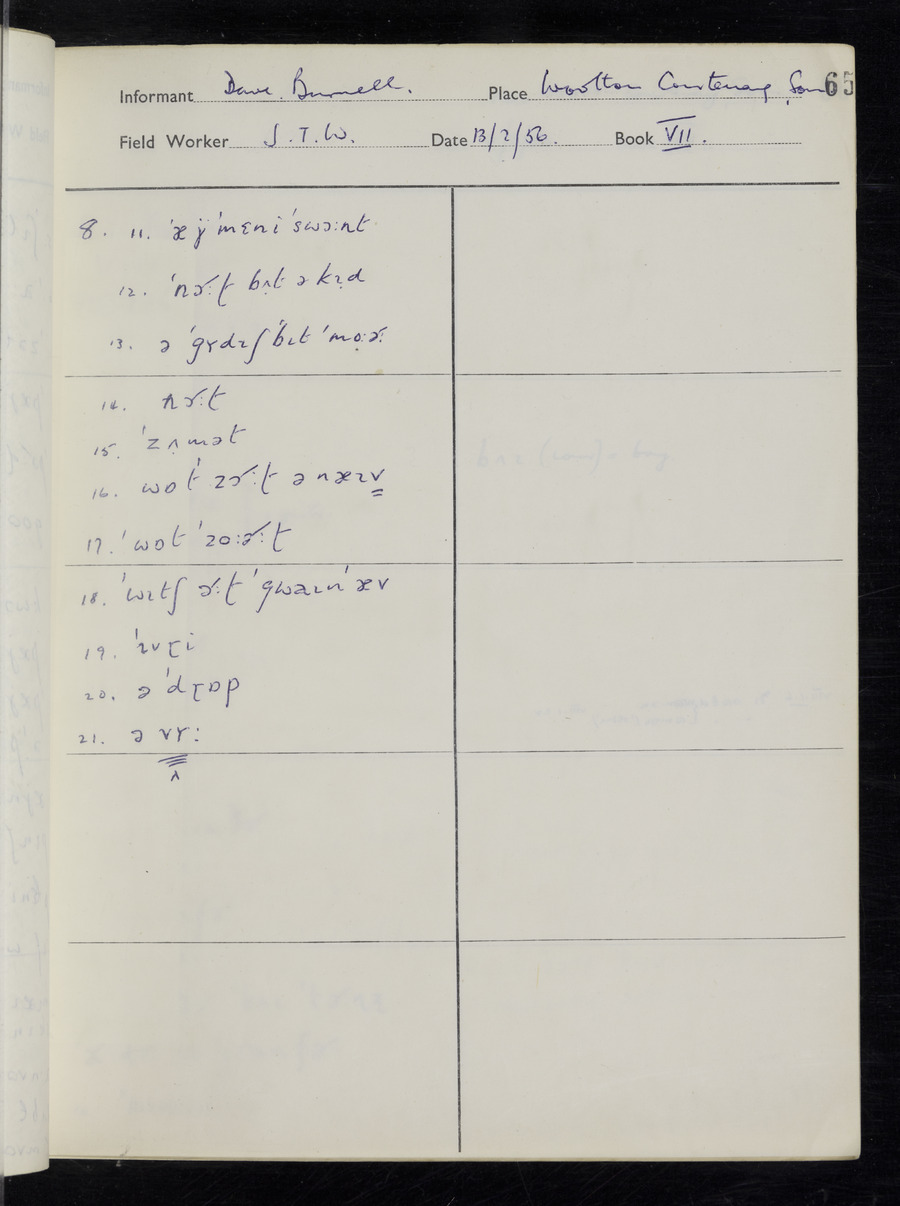 Informant Dave Burnell. Place Wootton Courtenay, Som 65
Field Worker S.T.W. Date 13/2/56. Book VII.
8. 11. ˈæ ÿ ˈmɛni ˈswɔːnt
12. ˈnɔ˞ːʈ bʌt ə kɪd
13. ə ˈgɤdɪʃ ˈbɪt ˈmoːɚː
14. nɔ˞ːʈ
15. ˈzʌmət
16. wɒt ˈzɔ˞ːʈ ə næɪv
17. ˈwɒt ˈzoːɚːʈ
18. ˈwɪtʃ ɚːʈ ˈgwaɪn ˈæv
19. ˈɪvɽi
20. ə ˈdɽɒp
21. ə vɤː
ʌ